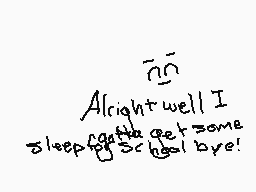 Alright well I
gotta get some
sleep for school bye!